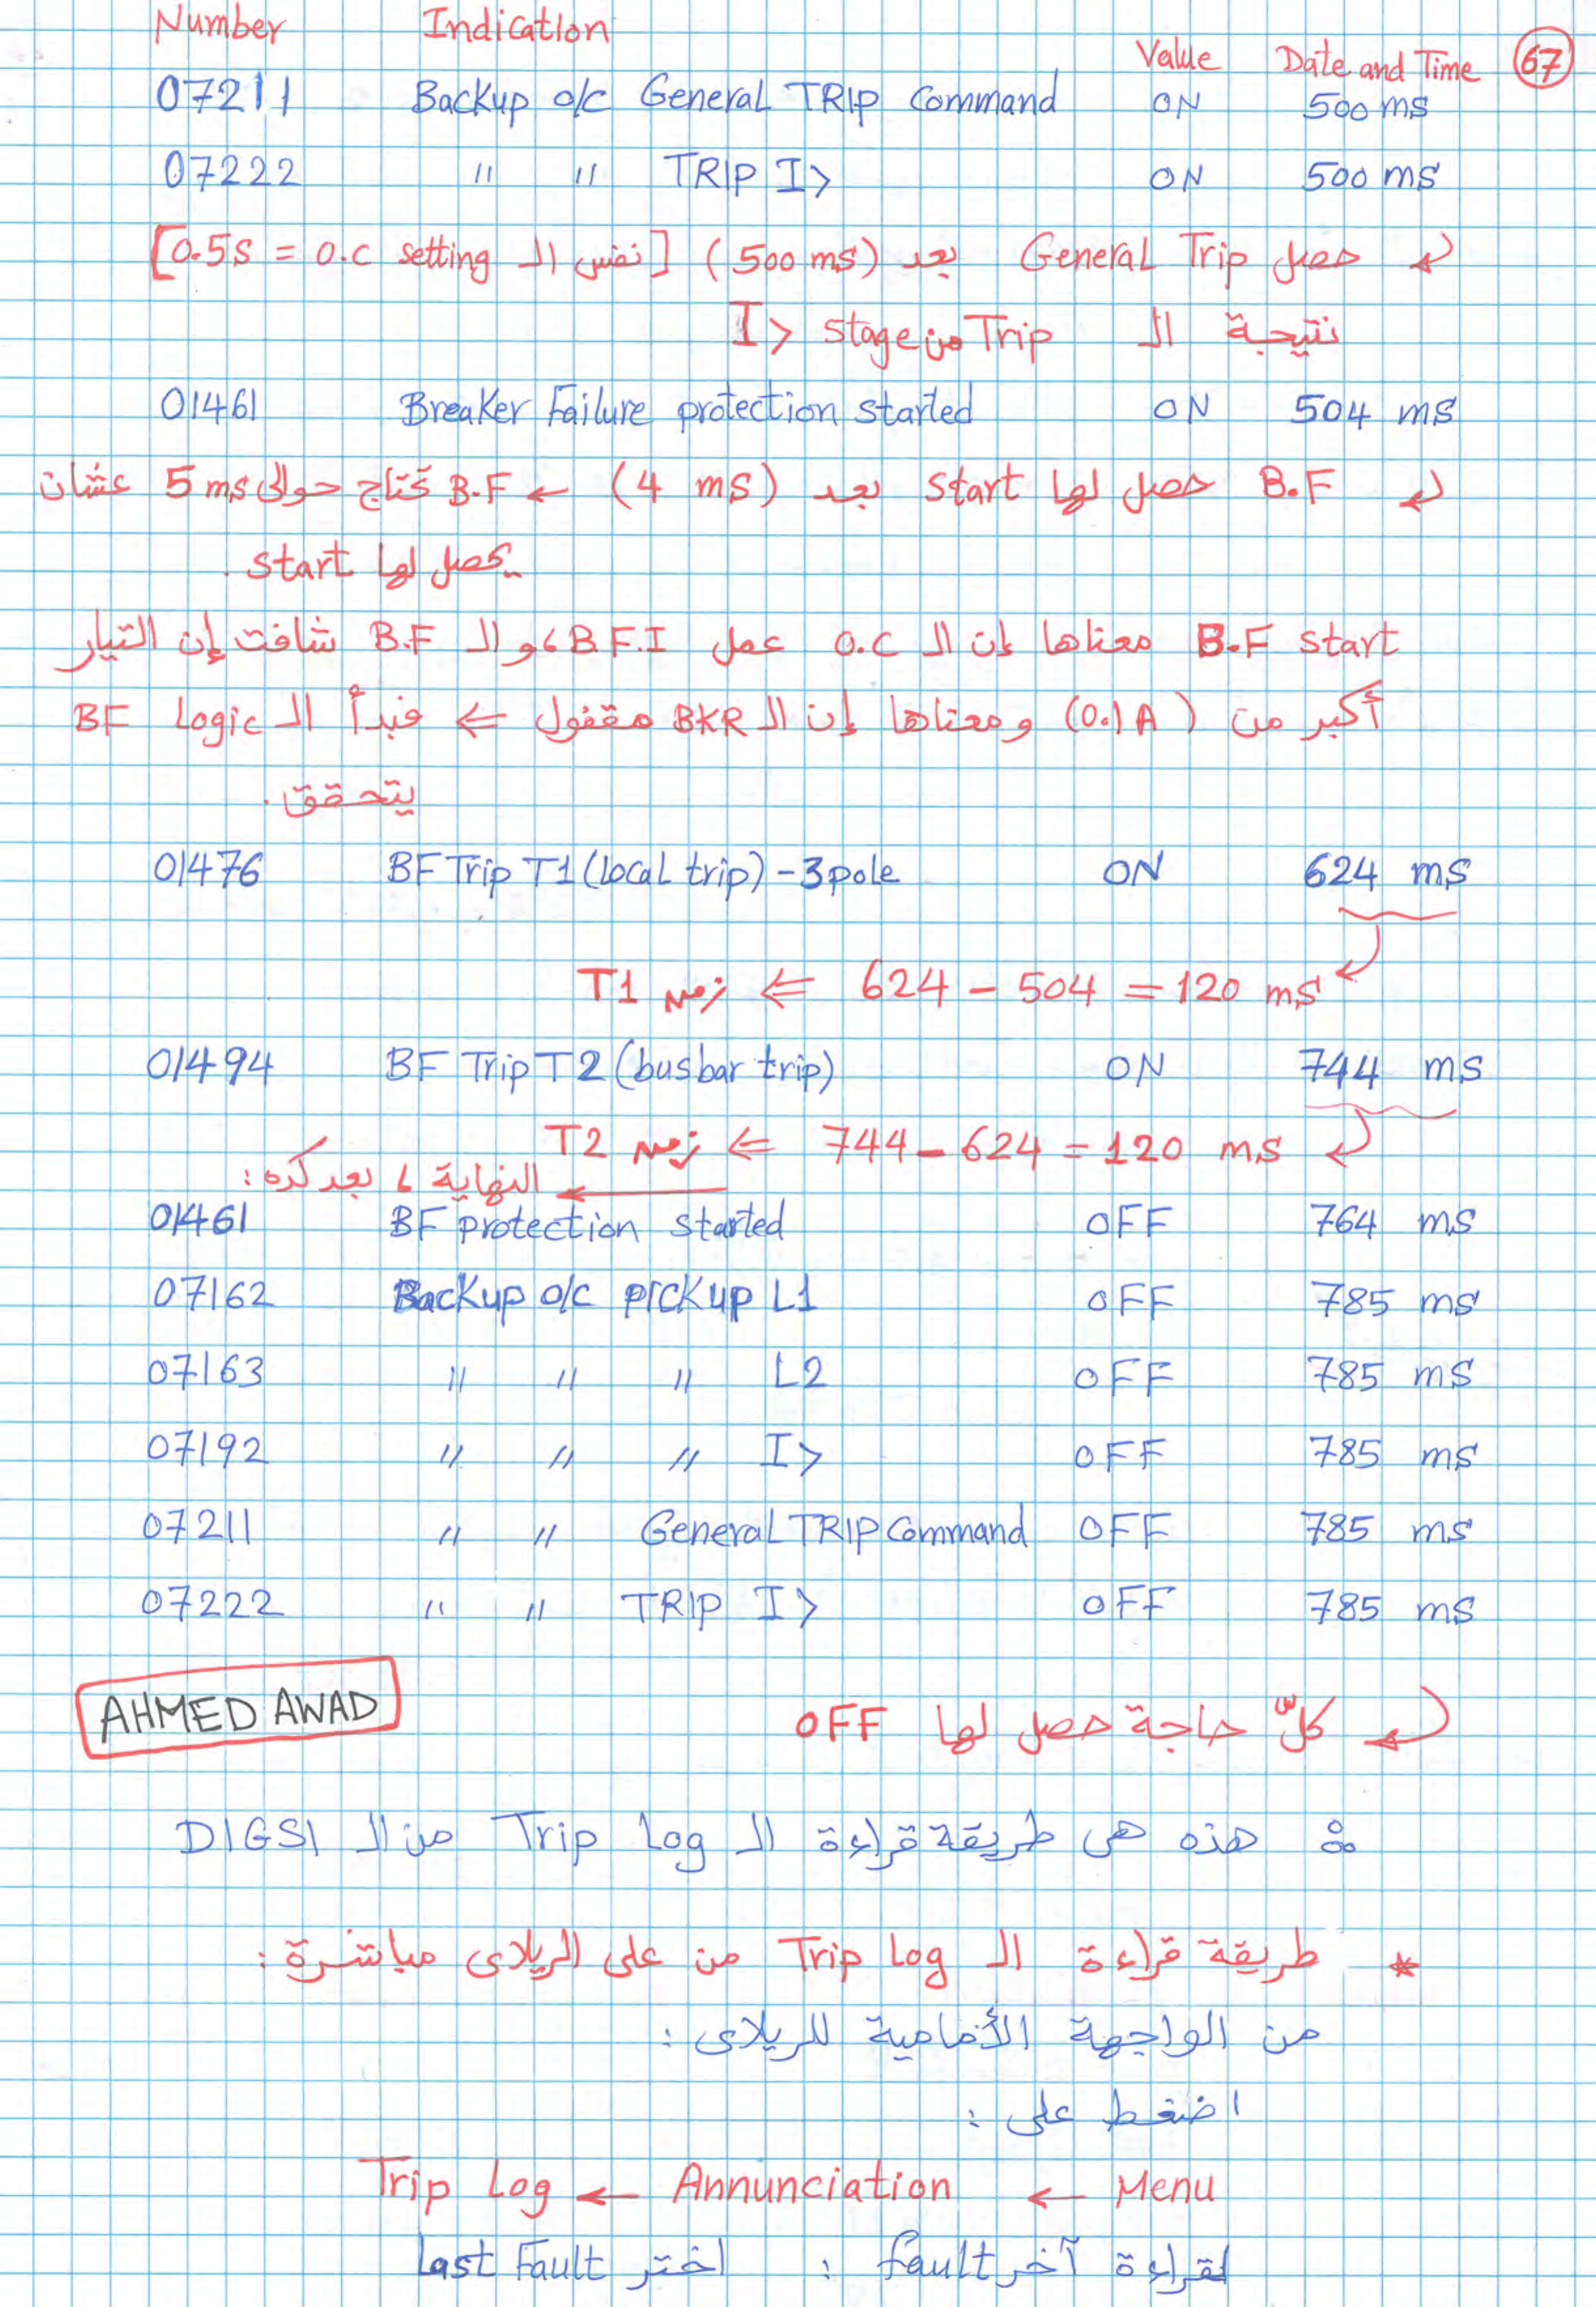 Number Indication Value Date and Time 67
07211 Backup o/c General TRIP Command ON 500 ms
07222 " " TRIP I> ON 500 ms
حصل General Trip بعد (500 ms) [نفس الـ 0.5s = o.c setting]
نتيجة الـ Trip من stage I>
01461 Breaker Failure protection started ON 504 ms
B.F حصل لها start بعد (4 ms) ← B.F تحتاج حوالى 5 ms عشان
يحصل لها start .
B.F start معناها إن الـ o.c عمل B.F.I، والـ B.F شافت إن التيار
أكبر من (0.1A) ومعناها إن الـ BKR مقفول ⇐ فبدأ الـ BF Logic
يتحقق .
01476 BF Trip T1 (local trip) - 3pole ON 624 ms
624 - 504 = 120 ms ⇐ زمن T1
01494 BF Trip T2 (busbar trip) ON 744 ms
744 - 624 = 120 ms ⇐ زمن T2
← النهاية، بعد كده :
01461 BF protection started OFF 764 ms
07162 Backup o/c pickup L1 OFF 785 ms
07163 " " " L2 OFF 785 ms
07192 " " " I> OFF 785 ms
07211 " " General TRIP Command OFF 785 ms
07222 " " TRIP I> OFF 785 ms
AHMED AWAD
كلّ حاجة حصل لها OFF
هذه هى طريقة قراءة الـ Trip Log من الـ DIGSI
* طريقة قراءة الـ Trip Log من على الريلاى مباشرة :
من الواجهة الأمامية للريلاى :
اضغط على :
Menu ← Annunciation ← Trip Log
لقراءة آخر fault : اختر last Fault